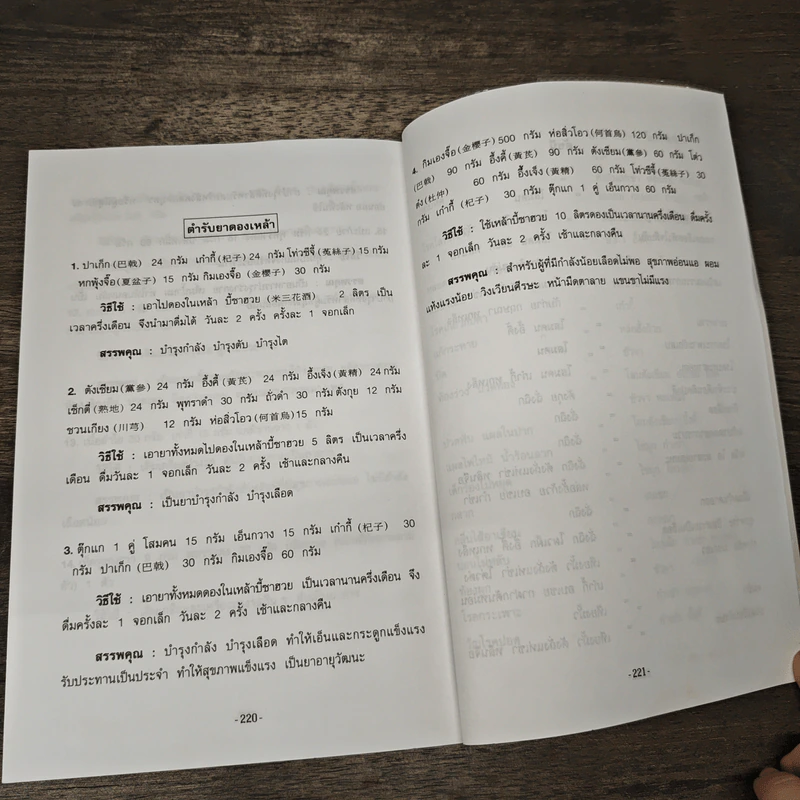 ตำรับยาดองเหล้า
1. ปาเก็ก(巴戟) 24 กรัม เก๋ากี้(杞子)24 กรัม โท่วซีจี้(菟絲子)15 กรัม
ทกพุ้งจื้อ(夏盆子) 15 กรัม กิมเองจื้อ(金櫻子) 30 กรัม
วิธีใช้ : เอาไปดองในเหล้า บี้ซาฮวย (米三花酒) 2 ลิตร เป็น
เวลาครึ่งเดือน จึงนำมาดื่มได้ วันละ 2 ครั้ง ครั้งละ 1 จอกเล็ก
สรรพคุณ : บำรุงกำลัง บำรุงตับ บำรุงไต
2. ตังเซียม(黨參) 24 กรัม อึ้งคี้(黃芪) 24 กรัม อึ้งเจ็ง(黃精) 24 กรัม
เซ็กตี่(熟地) 24 กรัม พุทราดำ 30 กรัม ถั่วดำ 30 กรัม ตังกุย 12 กรัม
ชวนเกียง (川芎) 12 กรัม ห่อสิ่วโอว(何首烏)15 กรัม
วิธีใช้ : เอายาทั้งหมดไปดองในเหล้าบี้ซาฮวย 5 ลิตร เป็นเวลาครึ่ง
เดือน ดื่มวันละ 1 จอกเล็ก วันละ 2 ครั้ง เช้าและกลางคืน
สรรพคุณ : เป็นยาบำรุงกำลัง บำรุงเลือด
3. ตุ๊กแก 1 คู่ โสมคน 15 กรัม เอ็นกวาง 15 กรัม เก๋ากี้(杞子) 30
กรัม ปาเก็ก(巴戟) 30 กรัม กิมเองจื้อ 60 กรัม
วิธีใช้ : เอายาทั้งหมดดองในเหล้าบี้ซาฮวย เป็นเวลานานครึ่งเดือน จึง
ดื่มครั้งละ 1 จอกเล็ก วันละ 2 ครั้ง เช้าและกลางคืน
สรรพคุณ : บำรุงกำลัง บำรุงเลือด ทำให้เอ็นและกระดูกแข็งแรง
รับประทานเป็นประจำ ทำให้สุขภาพแข็งแรง เป็นยาอายุวัฒนะ
-220-
4. กิมเองจื้อ(金櫻子)500 กรัม ห่อสิ่วโอว(何首烏) 120 กรัม ปาเก็ก
(巴戟) 90 กรัม อึ้งคี้(黃芪) 90 กรัม ตังเซียม(黨參) 60 กรัม โต่ว
ต๋ง(杜仲) 60 กรัม อึ้งเจ็ง(黃精) 60 กรัม โท่วซีจี้(菟絲子) 30
กรัม เก๋ากี้ (杞子) 30 กรัม ตุ๊กแก 1 คู่ เอ็นกวาง 60 กรัม
วิธีใช้ : ใช้เหล้าบี้ซาฮวย 10 ลิตรดองเป็นเวลานานครึ่งเดือน ดื่มครั้ง
ละ 1 จอกเล็ก วันละ 2 ครั้ง เช้าและกลางคืน
สรรพคุณ : สำหรับผู้ที่มีกำลังน้อยเลือดไม่พอ สุขภาพอ่อนแอ ผอม
แห้งแรงน้อย วิงเวียนศีรษะ หน้ามืดตาลาย แขนขาไม่มีแรง
-221-